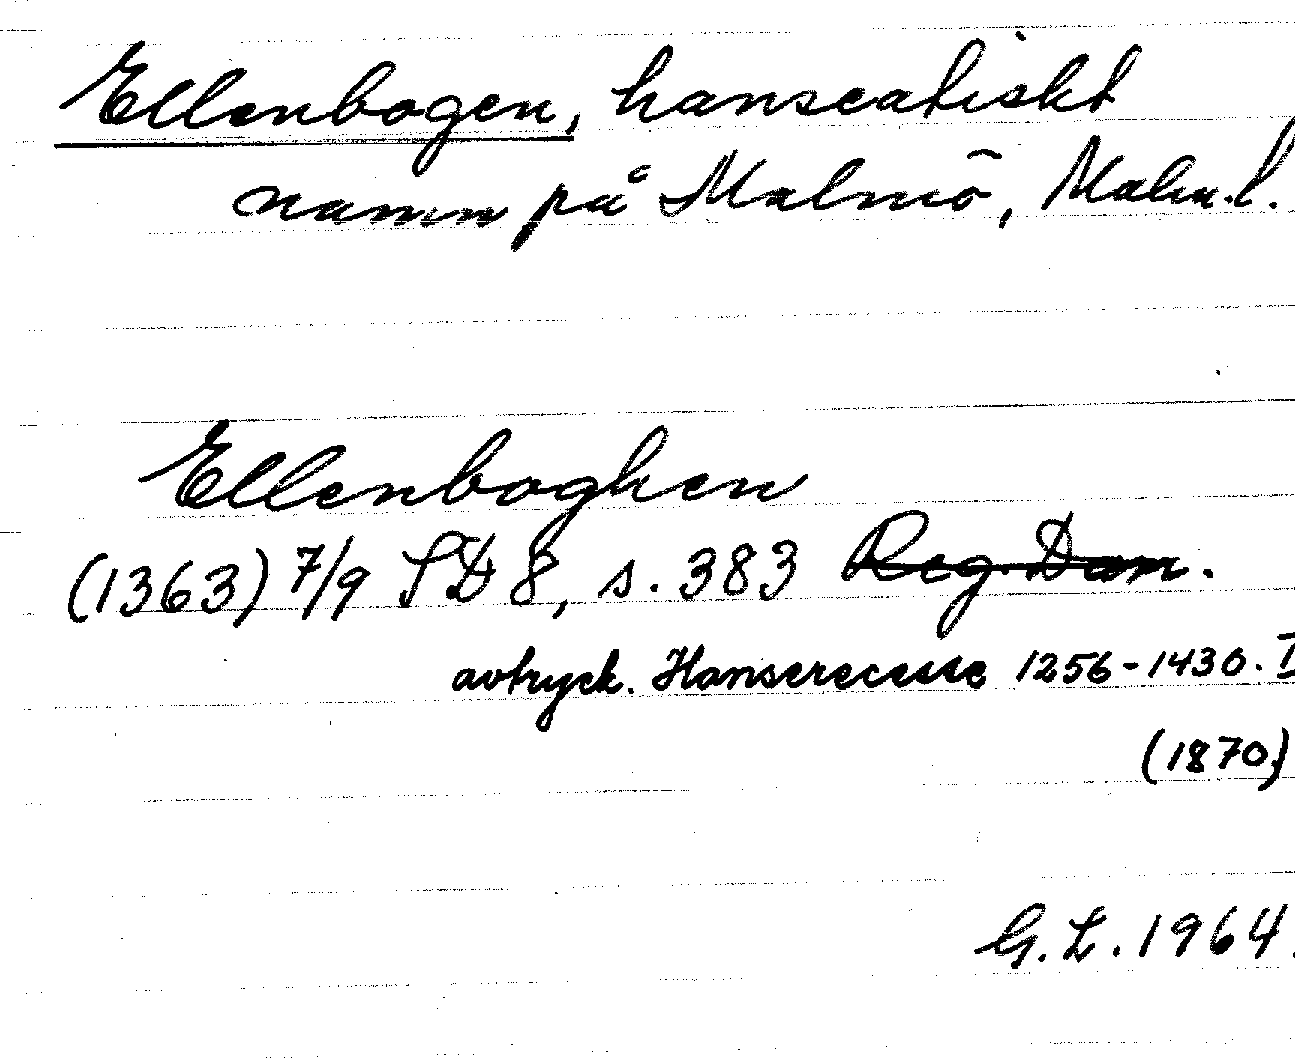 Ellenbogen, hanseatiskt
namn på Malmö, Malm.l.
Ellenboghen
(1363) 7/9 SD 8, s. 383 Reg. Dan.
avtryck. Hanserecesse 1256-1430. I
(1870)
G.L. 1964.